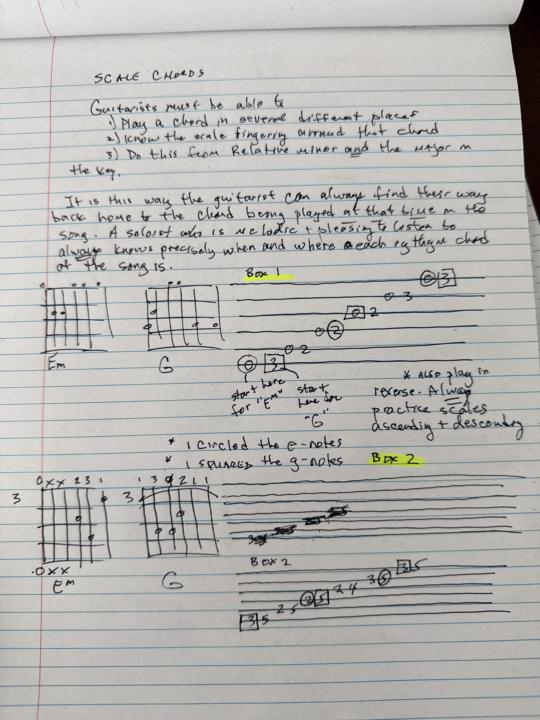 SCALE CHORDS
Guitarists must be able to
1) Play a chord in several different places
2) Know the scale fingering around that chord
3) Do this from Relative minor and the major in
the key.
It is this way the guitarist can always find their way
back home to the chord being played at that time in the
song. A soloist who is melodic + pleasing to listen to
always knows precisely when and where each rythym chord
of the song is.
Box 1
Em
G
0 3 0 2 0 2 0 2 0 3 0 3
start here for "Em"
start here for "G"
* ALSO play in
reverse. Always
practice scales
ascending + descending
* I circled the e-notes
* I SQUARED the g-notes
Box 2
0 x x 2 3 1
1 3 4 2 1 1
3
3
0 x x
Em
G
Box 2
3 5 2 5 2 5 2 4 3 5 3 5